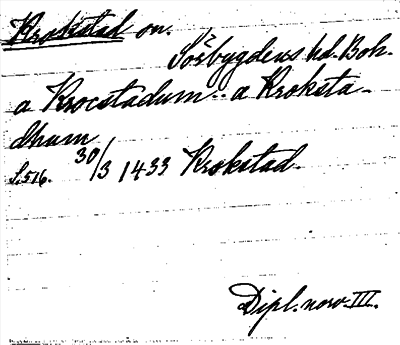 Krokstad on.
Sörbygdens hd. Boh.
a Krocstadum - a Kroksta-
dhum
S. 516. 30/3 1433 Krokstad.
Dipl. norv. III.